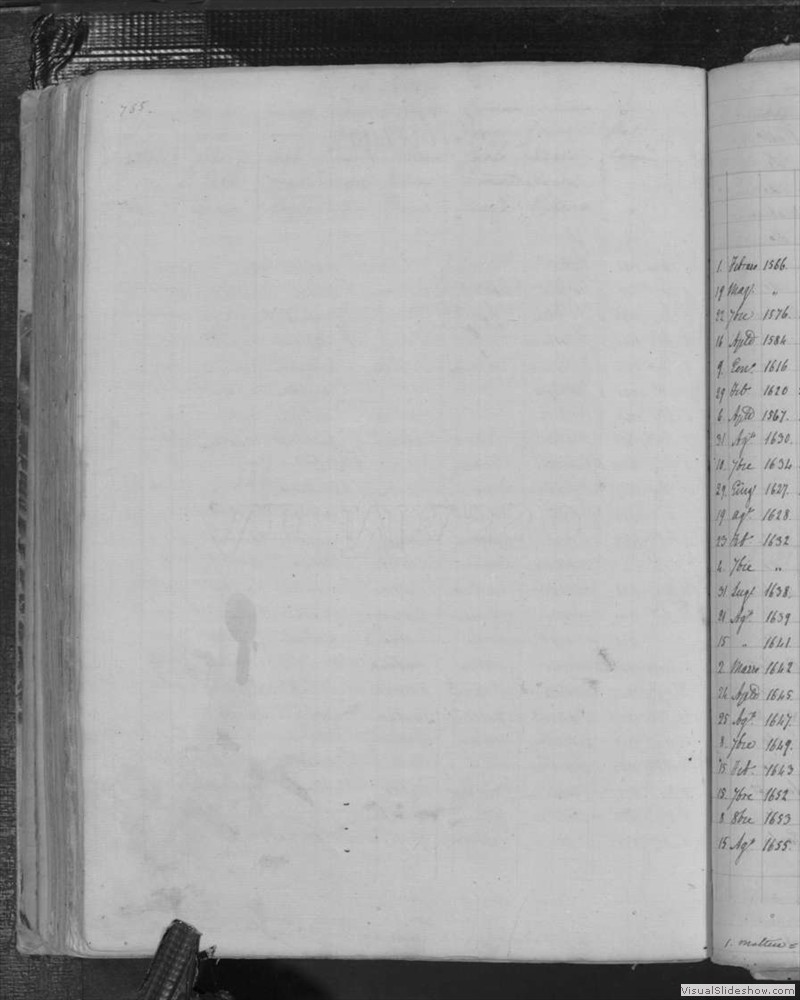 755.
1. Febraro 1566.
19 Magº "
22 7bre 1576.
16 Aple 1584
9. Genº 1616
29 Feb 1620
6. Aple 1567.
31 Agº 1630.
10. 7bre 1634
29. Giugº 1627.
19 agº 1628.
23 1632
4. 7bre "
31 Lugº 1638.
21 Agº 1639
15 " 1641
2 Marzo 1642
24 Aple 1645.
25 Agº 1647.
8. 7bre 1649.
15 1643
18. 7bre 1652
8 8bre 1653
15 Agº 1655.
1.
VisualSlideshow.com